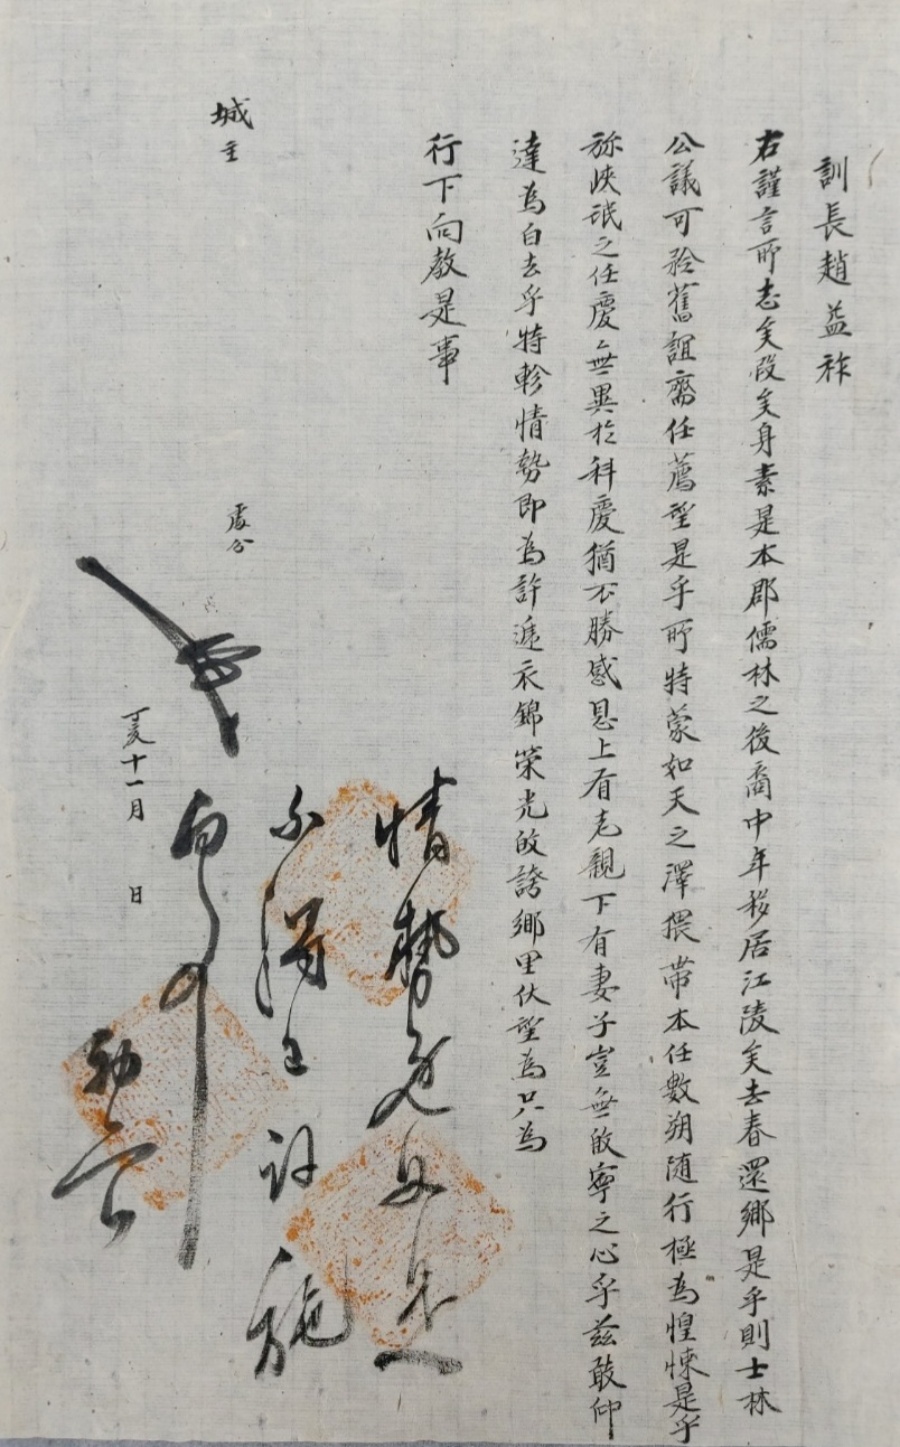 訓長趙益祚
右謹言所志矣段矣身素是本郡儒林之後裔中年移居江陵矣去春還鄉是乎則士林
公議可矜舊誼齋任薦望是乎所特蒙如天之澤猥帶本任數朔隨行極為惶悚是乎
旀峽氓之任慶無異於科慶猶不勝感恩上有老親下有妻子豈無啟寧之心乎茲敢仰
達為白去乎特軫情勢即為許遞衣錦榮光啟誇鄉里伏望為只為
行下向敎是事
城主
處分
丁亥十一月 日
情勢
不得已許施
向事